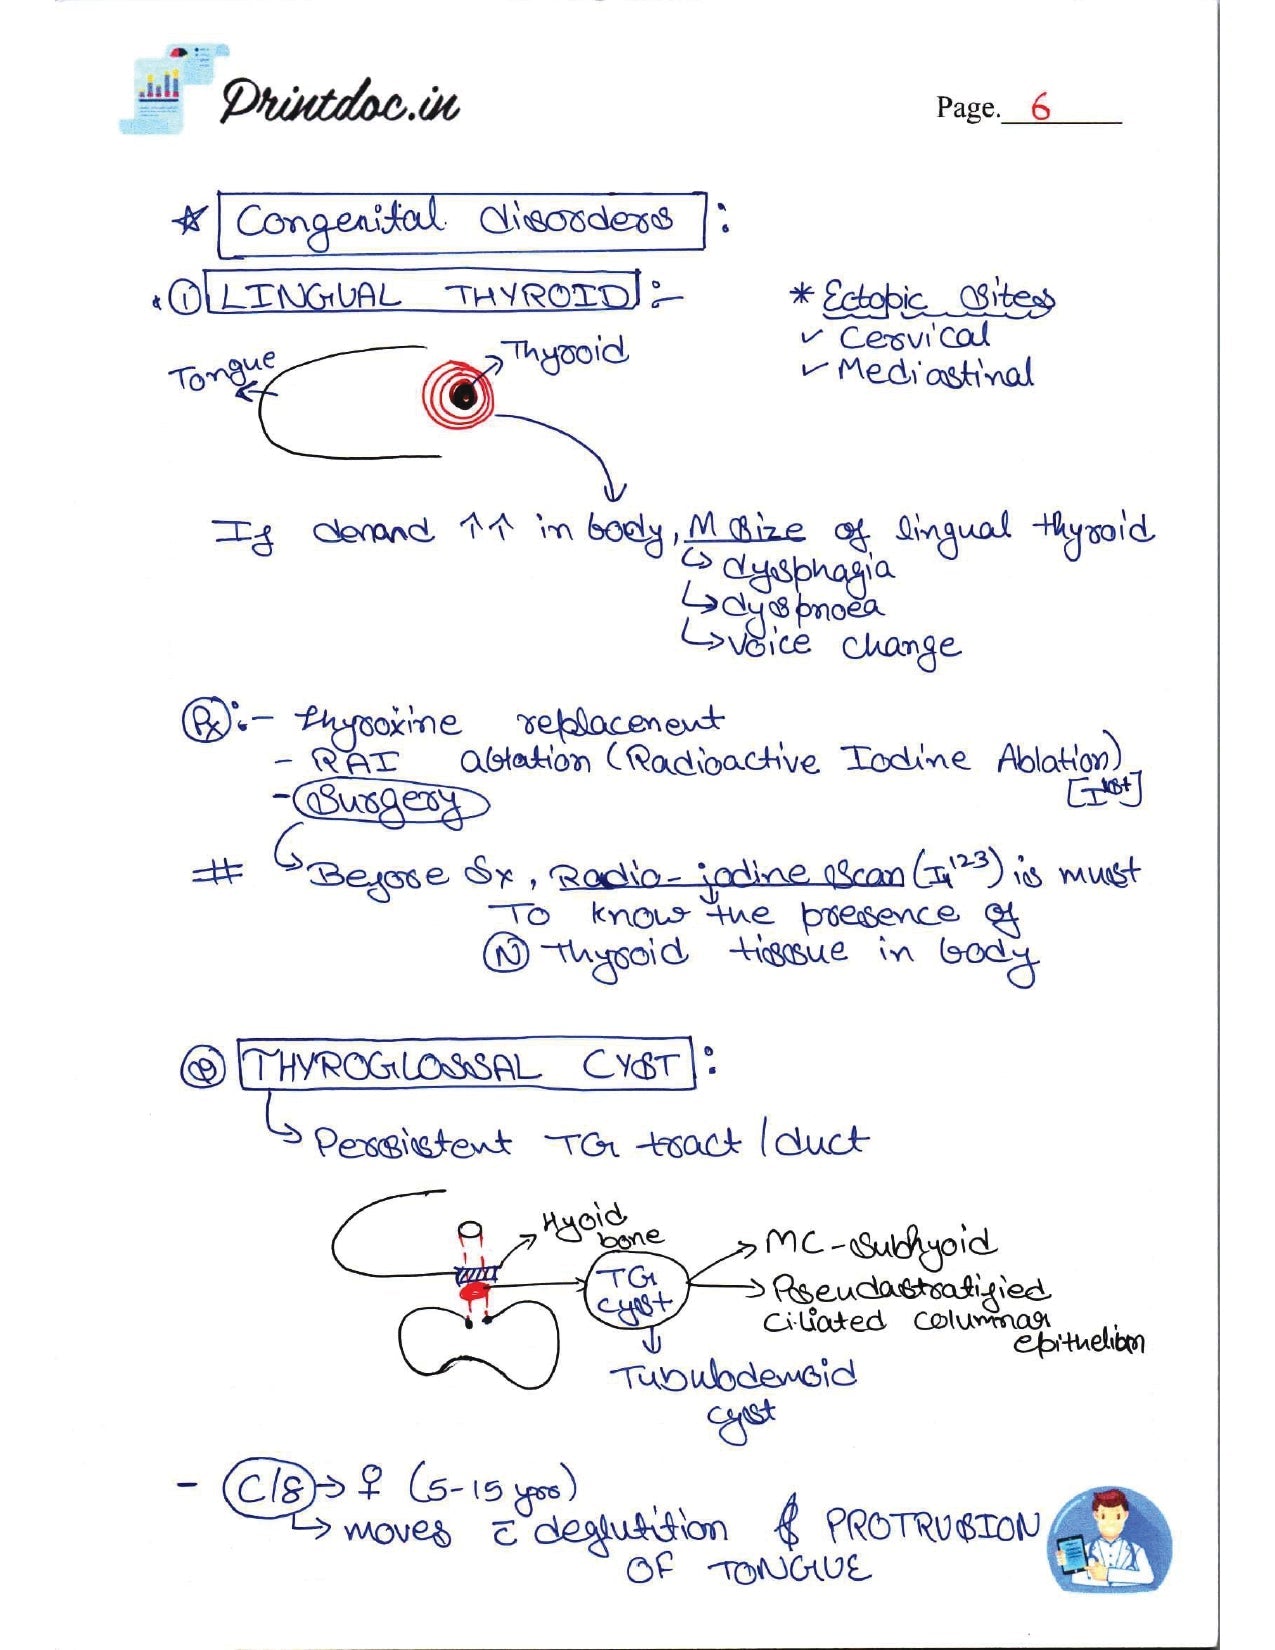 Printdoc.in
Page. 6
☆ Congenital disorders :
① LINGUAL THYROID :-
* Ectopic Sites
✓ Cervical
✓ Mediastinal
Tongue
Thyroid
If demand ↑↑ in body, M size of lingual thyroid
↳ dysphagia
↳ dyspnoea
↳ voice change
Rx :- thyroxine replacement
- RAI ablation (Radioactive Iodine Ablation)
- Surgery
# ↳ Before Sx, Radio-iodine scan (I¹²³) is must
To know the presence of
Ⓝ Thyroid tissue in body
② THYROGLOSSAL CYST :
↳ Persistent TG tract / duct
Hyoid bone
TG cyst
MC - Subhyoid
Pseudastratified
ciliated columnar
epithelium
Tubulodermoid
cyst
- C/S → ♀ (5-15 yrs)
↳ moves c̄ deglutition & PROTRUSION
OF TONGUE